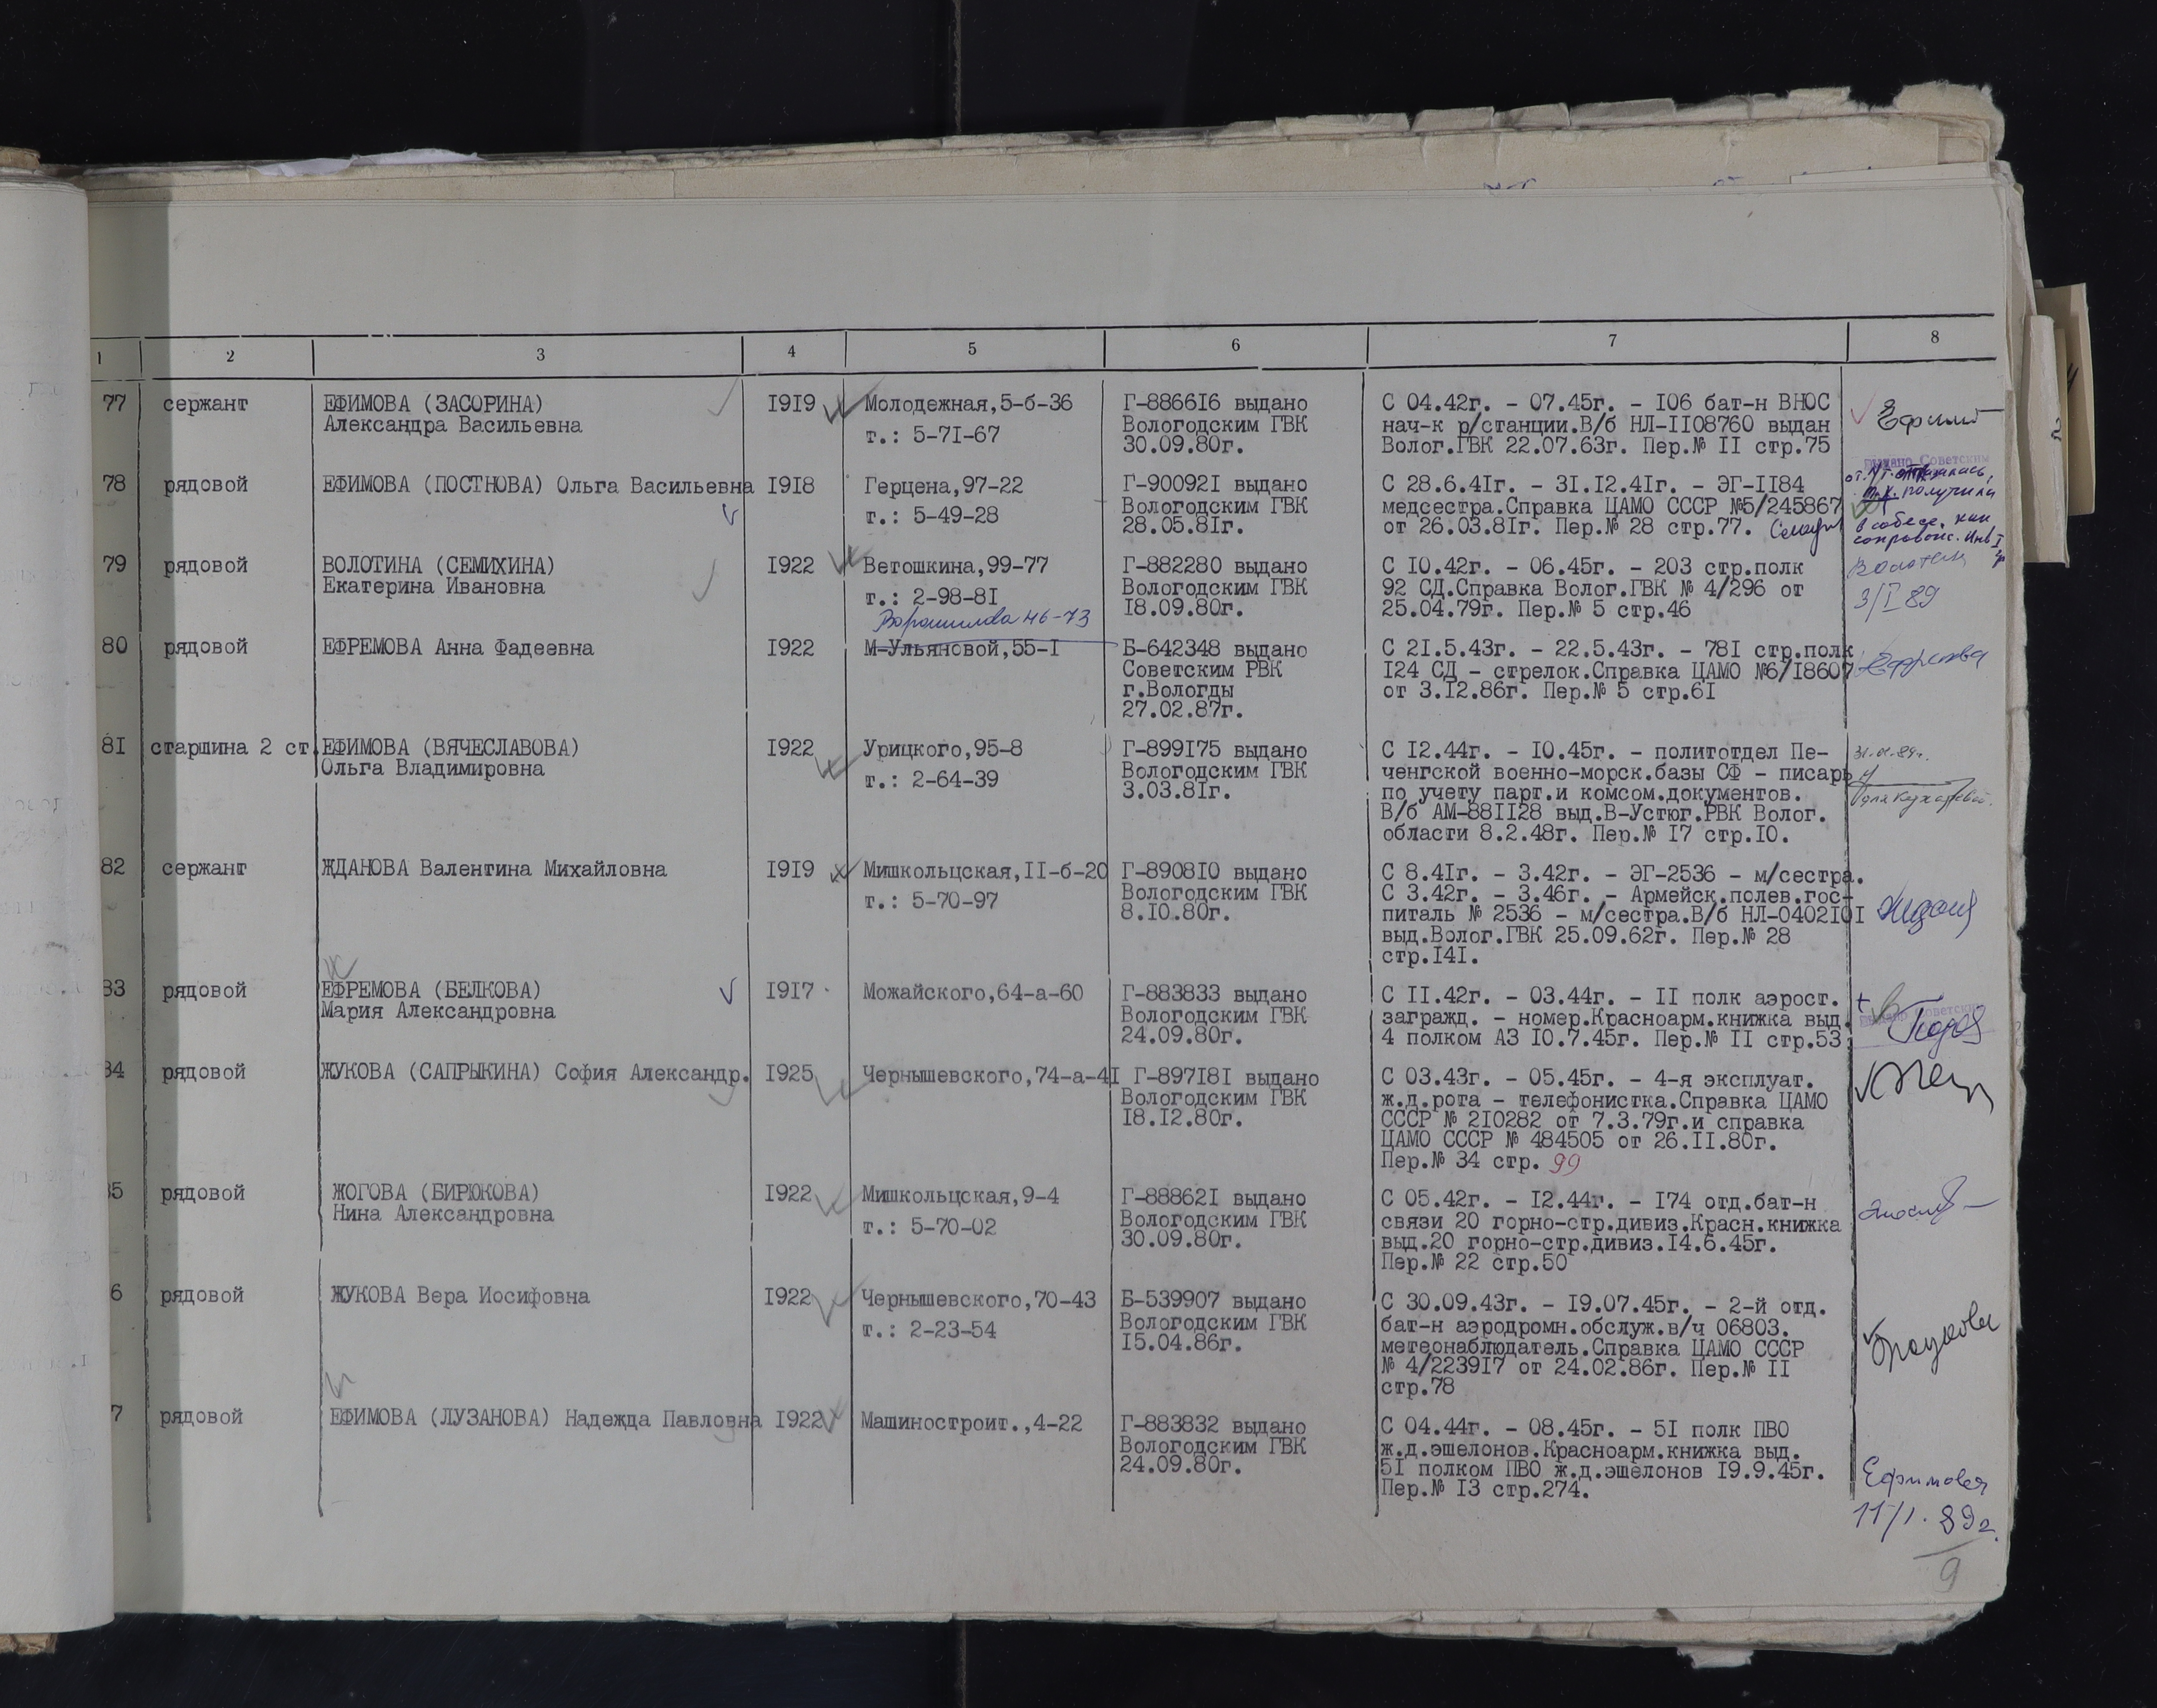 1 2 3 4 5 6 7 8
77 сержант ЕФИМОВА (ЗАСОРИНА) I9I9 Молодежная,5-б-36 Г-8866I6 выдано С 04.42г. - 07.45г. - I06 бат-н ВНОС
Александра Васильевна т.: 5-7I-67 Вологодским ГВК нач-к р/станции.В/б НЛ-II08760 выдан
30.09.80г. Волог.ГВК 22.07.63г. Пер.№ II стр.75
78 рядовой ЕФИМОВА (ПОСТНОВА) Ольга Васильевна I9I8 Герцена,97-22 Г-90092I выдано С 28.6.4Iг. - 3I.I2.4Iг. - ЭГ-II84
т.: 5-49-28 Вологодским ГВК медсестра.Справка ЦАМО СССР №5/245867 т.к. получила
28.05.8Iг. от 26.03.8Iг. Пер.№ 28 стр.77. в собесе, как
79 рядовой ВОЛОТИНА (СЕМИХИНА) I922 Ветошкина,99-77 Г-882280 выдано С I0.42г. - 06.45г. - 203 стр.полк
Екатерина Ивановна т.: 2-98-8I Вологодским ГВК 92 СД.Справка Волог.ГВК № 4/296 от
I8.09.80г. 25.04.79г. Пер.№ 5 стр.46 3/I 89
Ворошилова 46-73
80 рядовой ЕФРЕМОВА Анна Фадеевна I922 М-Ульяновой,55-I Б-642348 выдано С 2I.5.43г. - 22.5.43г. - 78I стр.полк
Советским РВК I24 СД - стрелок.Справка ЦАМО №6/I8607
г.Вологды от 3.I2.86г. Пер.№ 5 стр.6I
27.02.87г.
8I старшина 2 ст. ЕФИМОВА (ВЯЧЕСЛАВОВА) I922 Урицкого,95-8 Г-899I75 выдано С I2.44г. - I0.45г. - политотдел Пе-
Ольга Владимировна т.: 2-64-39 Вологодским ГВК ченгской военно-морск.базы СФ - писарь
3.03.8Iг. по учету парт.и комсом.документов.
В/б АМ-88II28 выд.В-Устюг.РВК Волог.
области 8.2.48г. Пер.№ I7 стр.I0.
82 сержант ЖДАНОВА Валентина Михайловна I9I9 Мишкольцская,II-б-20 Г-8908I0 выдано С 8.4Iг. - 3.42г. - ЭГ-2536 - м/сестра.
т.: 5-70-97 Вологодским ГВК С 3.42г. - 3.46г. - Армейск.полев.гос-
8.I0.80г. питаль № 2536 - м/сестра.В/б НЛ-0402I0I
выд.Волог.ГВК 25.09.62г. Пер.№ 28
стр.I4I.
83 рядовой ЕФРЕМОВА (БЕЛКОВА) I9I7 Можайского,64-а-60 Г-883833 выдано С II.42г. - 03.44г. - II полк аэрост.
Мария Александровна Вологодским ГВК загражд. - номер.Красноарм.книжка выд.
24.09.80г. 4 полком АЗ I0.7.45г. Пер.№ II стр.53
84 рядовой ЖУКОВА (САПРЫКИНА) София Александр. I925 Чернышевского,74-а-4I Г-897I8I выдано С 03.43г. - 05.45г. - 4-я эксплуат.
Вологодским ГВК ж.д.рота - телефонистка.Справка ЦАМО
I8.I2.80г. СССР № 2I0282 от 7.3.79г.и справка
ЦАМО СССР № 484505 от 26.II.80г.
Пер.№ 34 стр. 99
85 рядовой ЖОГОВА (БИРЮКОВА) I922 Мишкольцская,9-4 Г-88862I выдано С 05.42г. - I2.44г. - I74 отд.бат-н
Нина Александровна т.: 5-70-02 Вологодским ГВК связи 20 горно-стр.дивиз.Красн.книжка
30.09.80г. выд.20 горно-стр.дивиз.I4.6.45г.
Пер.№ 22 стр.50
6 рядовой ЖУКОВА Вера Иосифовна I922 Чернышевского,70-43 Б-539907 выдано С 30.09.43г. - I9.07.45г. - 2-й отд.
т.: 2-23-54 Вологодским ГВК бат-н аэродромн.обслуж.в/ч 06803.
I5.04.86г. метеонаблюдатель.Справка ЦАМО СССР
№ 4/2239I7 от 24.02.86г. Пер.№ II
стр.78
7 рядовой ЕФИМОВА (ЛУЗАНОВА) Надежда Павловна I922 Машиностроит.,4-22 Г-883832 выдано С 04.44г. - 08.45г. - 5I полк ПВО
Вологодским ГВК ж.д.эшелонов.Красноарм.книжка выд.
24.09.80г. 5I полком ПВО ж.д.эшелонов I9.9.45г.
Пер.№ I3 стр.274. Ефимова
11/1. 89г.
9